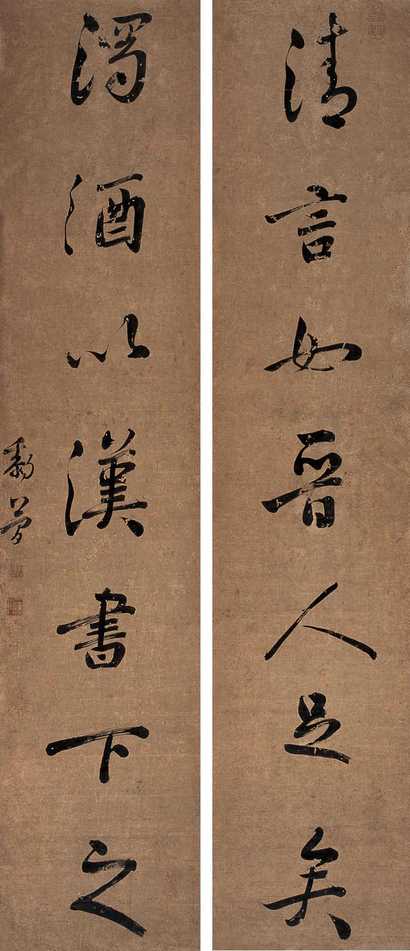 清言如晉人足矣
濁酒以漢書下之